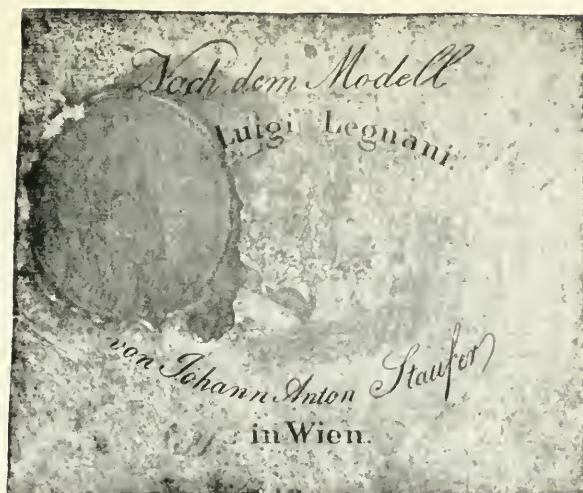 Nach dem Modell
Luigi Legnani.
von Johann Anton Staufer
in Wien.